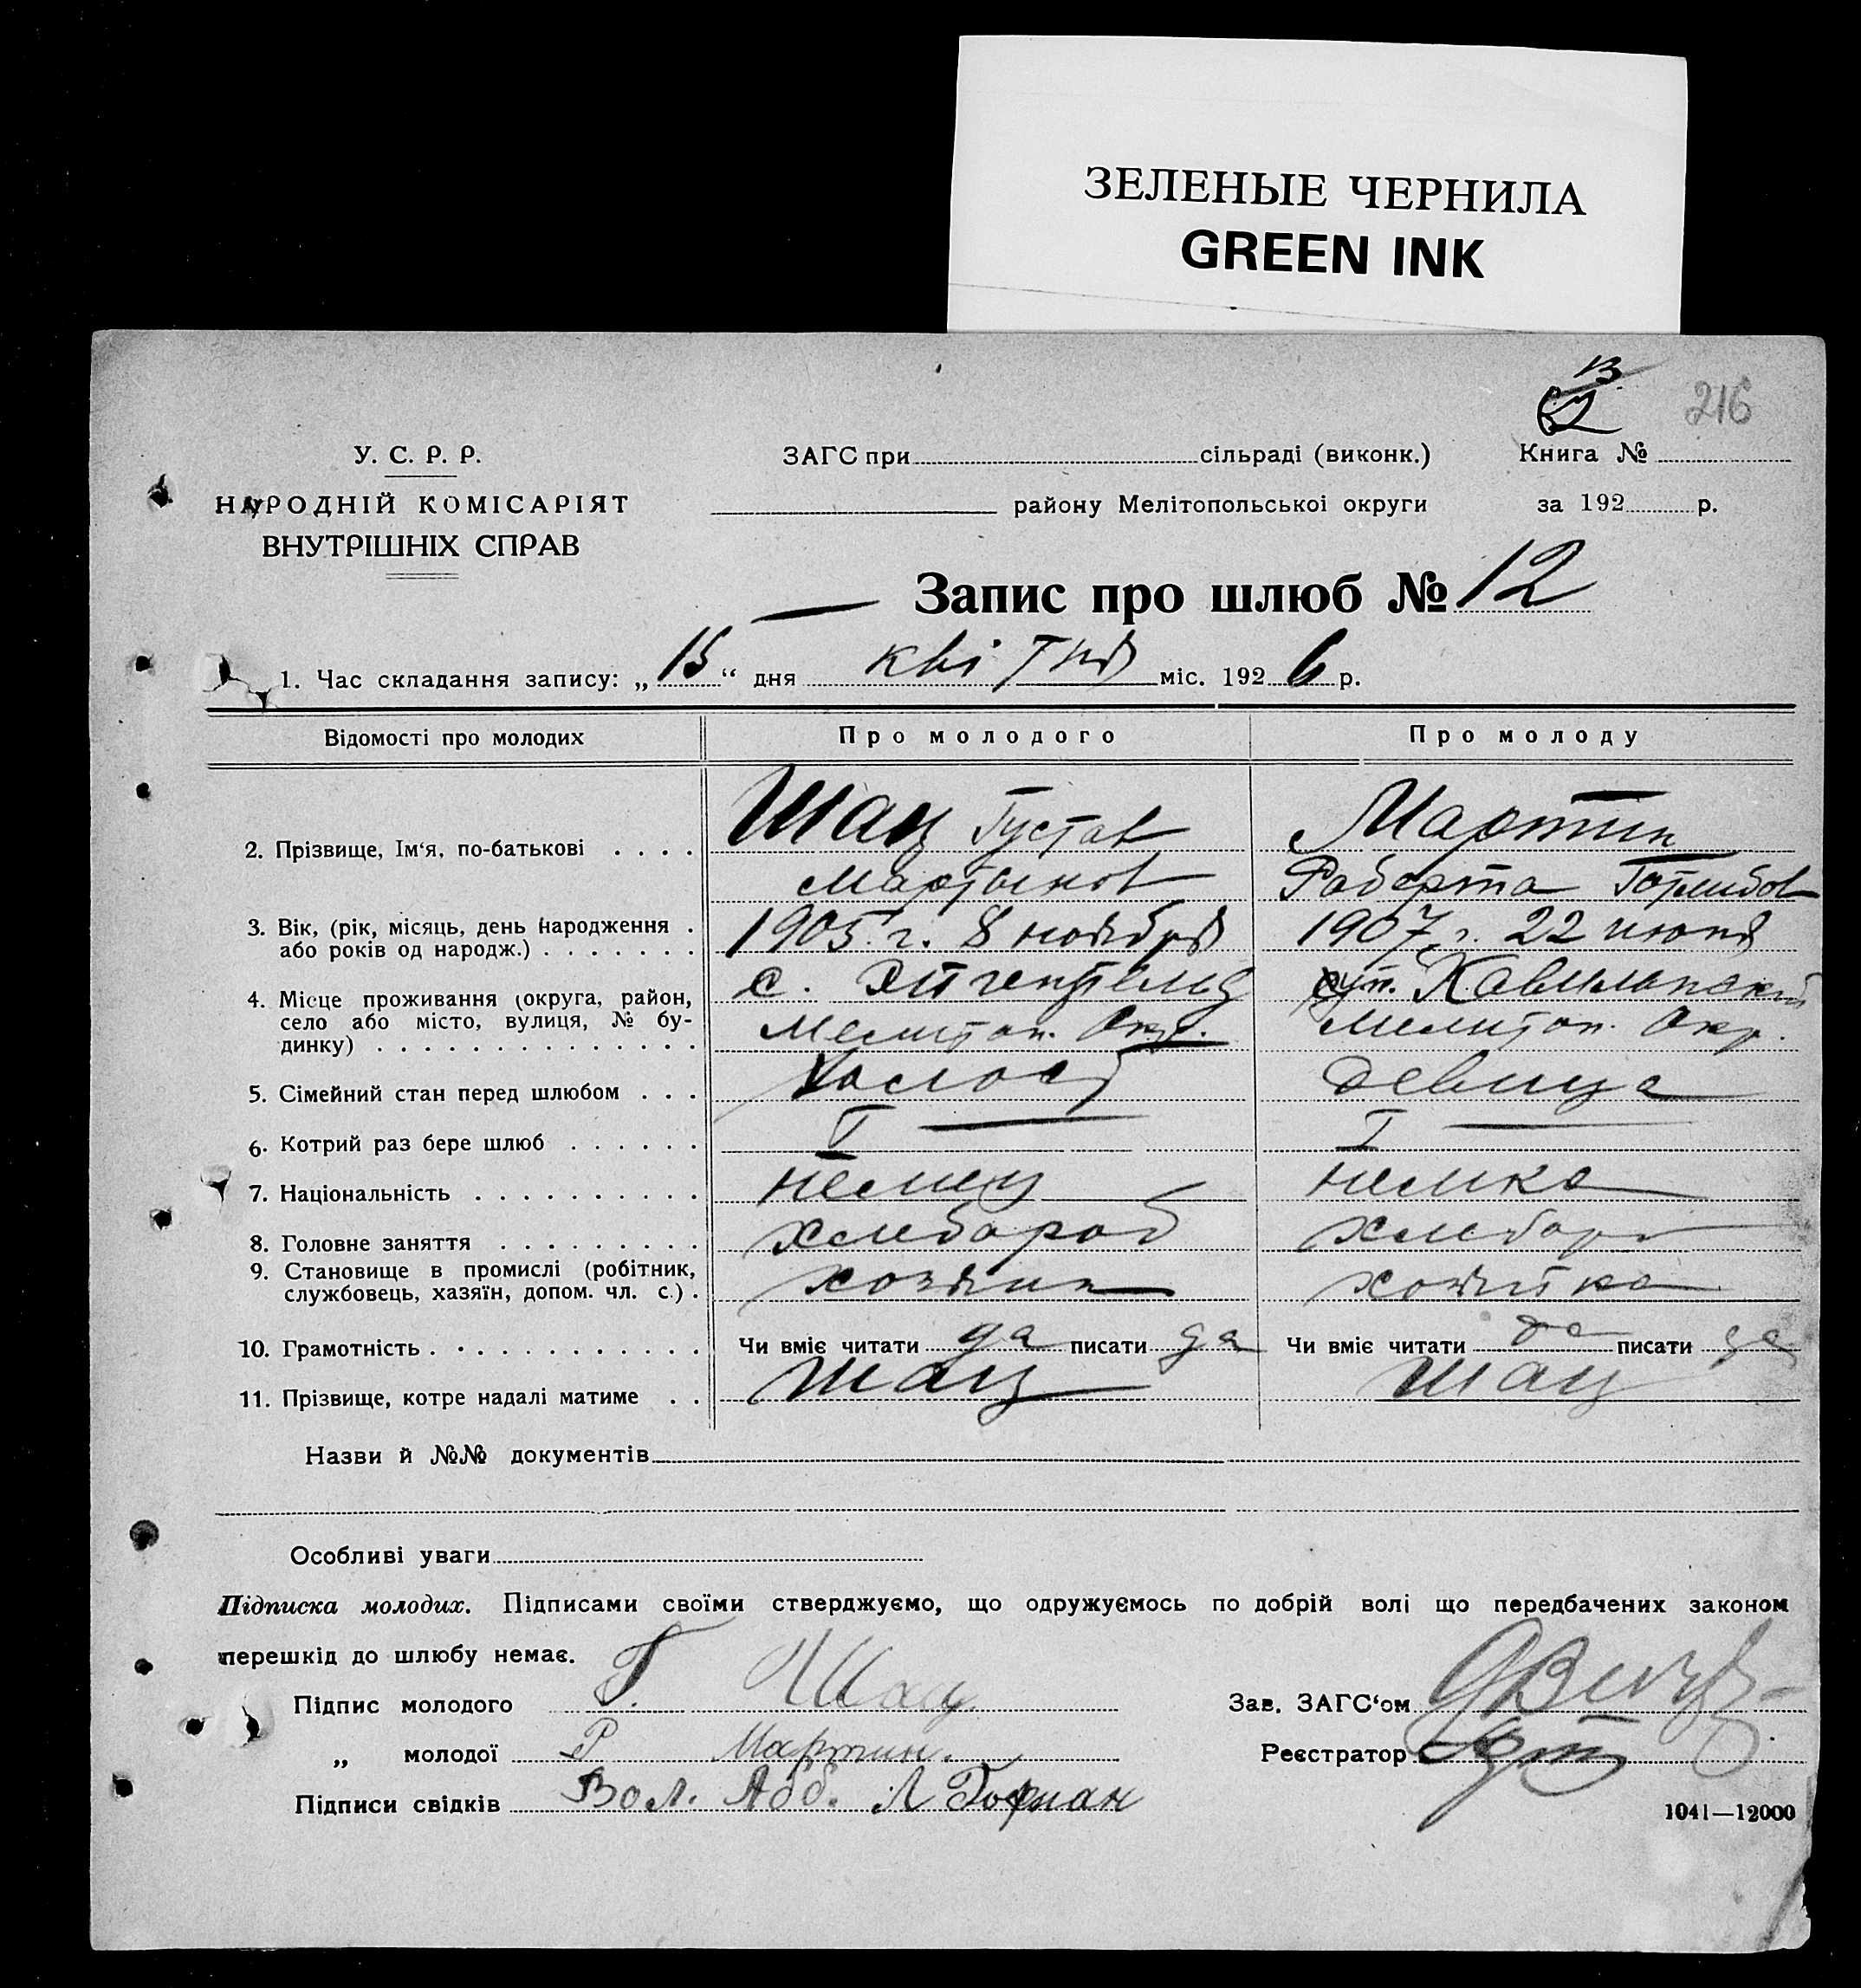 ЗЕЛЕНЫЕ ЧЕРНИЛА
GREEN INK
216
У. С. Р. Р.
НАРОДНІЙ КОМІСАРІЯТ
ВНУТРІШНІХ СПРАВ
ЗАГС при сільраді (виконк.)
району Мелітопольської округи
Книга №
за 192 р.
Запис про шлюб № 12
1. Час складання запису: „15“ дня квітня міс. 1926 р.
Відомості про молодих Про молодого Про молоду
2. Прізвище, Ім'я, по-батькові . . . . Шац Густав Мартин
Мартынов Роберта Готлибов
3. Вік, (рік, місяць, день народження . 1905 г. 8 ноября 1907 г. 22 июня
або років од народж.) . . . . . . .
4. Місце проживання (округа, район, с.
село або місто, вулиця, № бу- Мелитоп. Окр. Мелитоп. Окр.
динку) . . . . . . . . . . . . . .
5. Сімейний стан перед шлюбом . . . Холост Девица
6. Котрий раз бере шлюб . . . . . . I I
7. Національність . . . . . . . . . . немец немка
8. Головне заняття . . . . . . . . . хлебороб хлебор
9. Становище в промислі (робітник, хозяин хозяйка
службовець, хазяїн, допом. чл. с.) .
10. Грамотність . . . . . . . . . . . . Чи вміє читати да писати да Чи вміє читати да писати да
11. Прізвище, котре надалі матиме . . Шац Шац
Назви й №№ документів
Особливі уваги
Підписка молодих. Підписами своїми стверджуємо, що одружуємось по добрій волі що передбачених законом
перешкід до шлюбу немає.
Підпис молодого Г. Шац
„ молодої Р Мартин.
Підписи свідків Вол. Абб. Л Гофман
Зав. ЗАГС'ом
Реєстратор
1041—12000